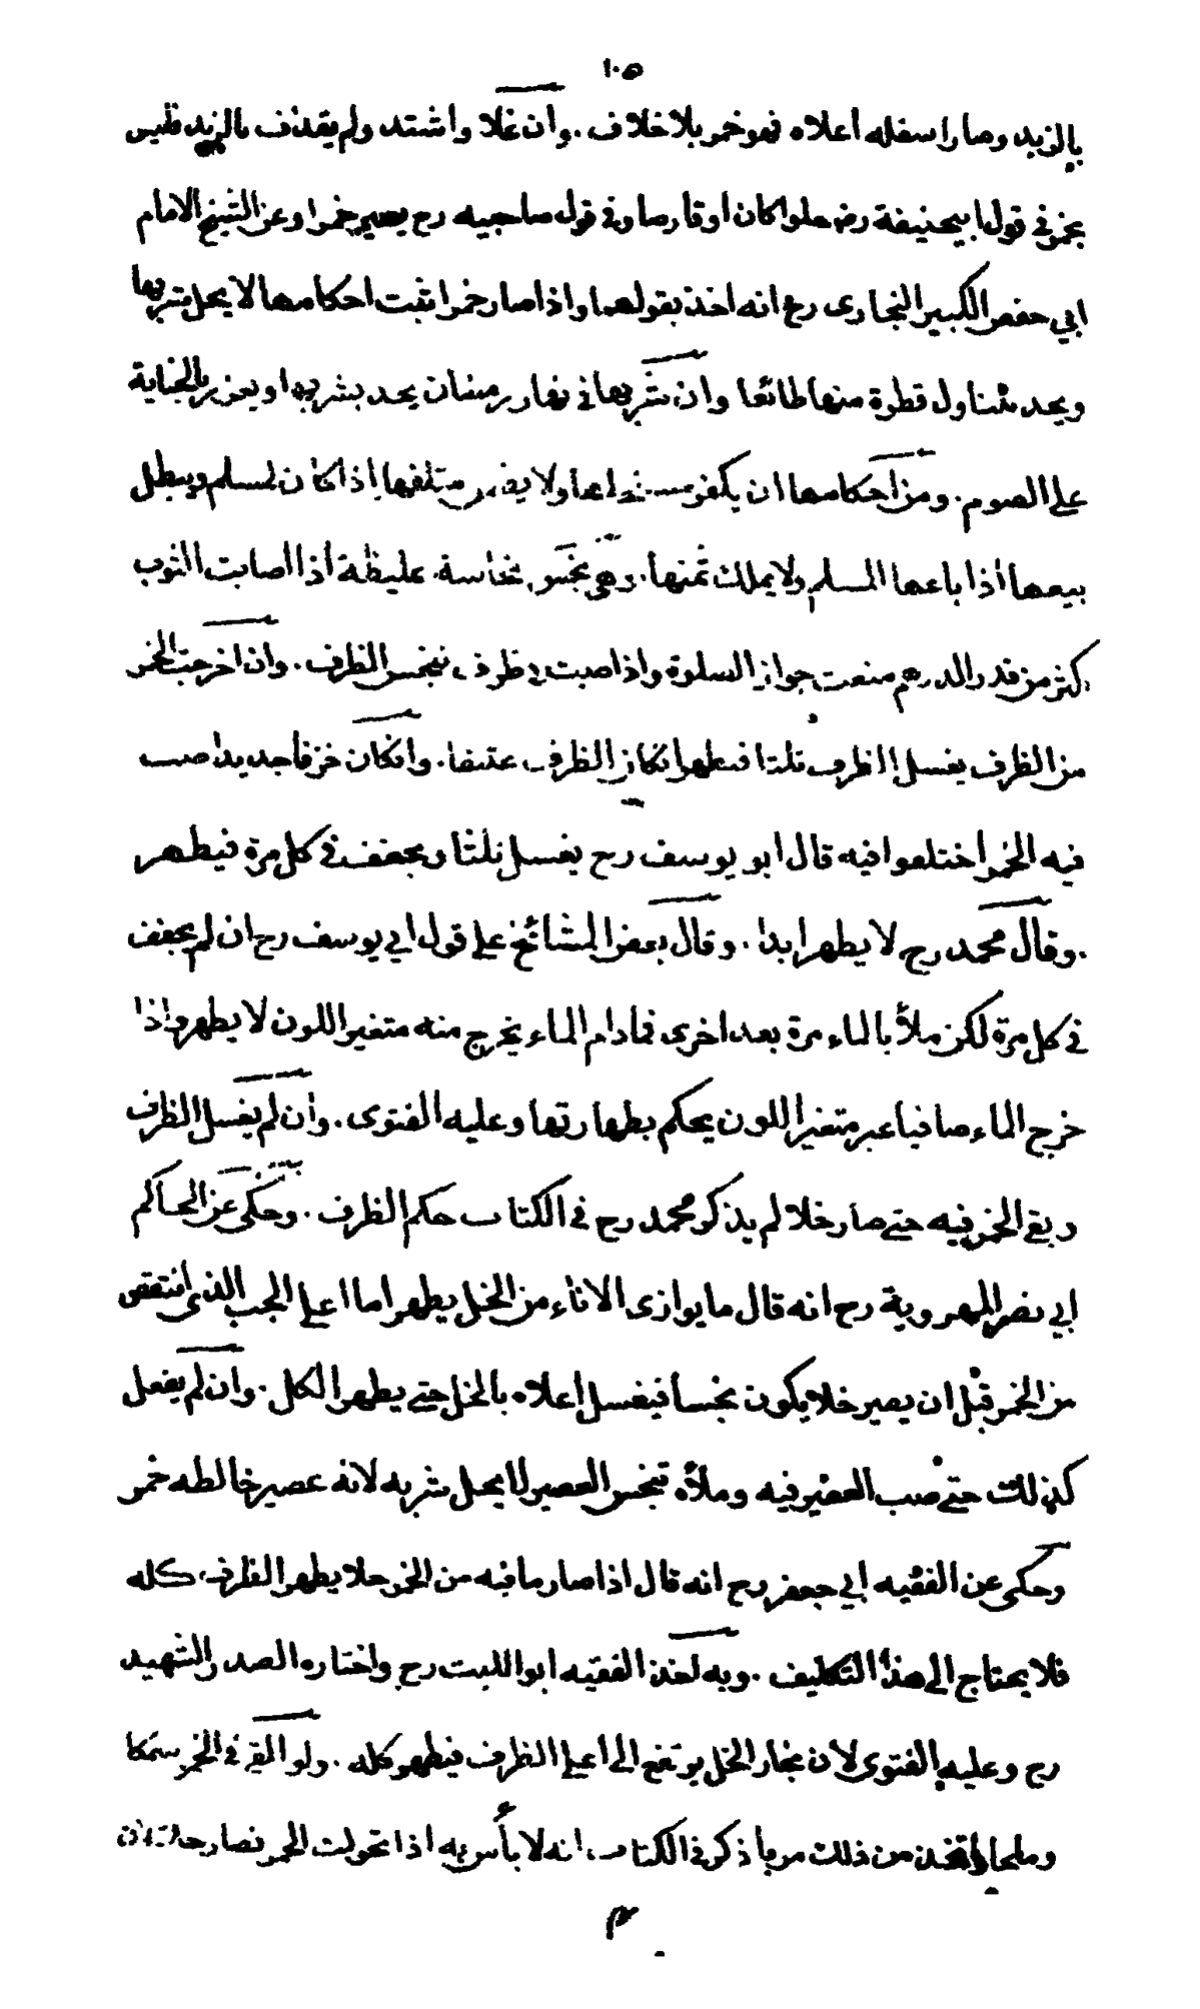 ١٠٥
بالزبد وصار اسفله اعلاه فهو خمر بلا خلاف . وان غلا واشتد ولم يقذف بالزبد فليس
بخمر في قول ابيحنيفة رض حلوا كان او قارصا وفي قول صاحبيه رح يصير خمرا وعن الشيخ الامام
ابي حفص الكبير البخارى رح انه اخذ بقولهما واذا صار خمرا تثبت احكامها لا يحل شربها
ويحد بتناول قطرة منها طائعا وان شربها في نهار رمضان يحد بشربها ويعزر بالجناية
على الصوم . ومن احكامها ان يكفر مستحلها ولا يضمن متلفها اذا كان لمسلم ويبطل
بيعها اذا باعها المسلم ولا يملك ثمنها . وهي نجس نجاسة غليظة اذا اصابت الثوب
اكثر من قدر الدرهم منعت جواز الصلوة واذا صبت في ظرف ينجس الظرف . وان اخرجت الخمر
من الظرف يغسل الظرف ثلثا فيطهر انكان الظرف عتيقا . وانكان خزفا جديدا صب
فيه الخمر اختلفوا فيه قال ابو يوسف رح يغسل ثلثا ويجفف في كل مرة فيطهر
. وقال محمد رح لا يطهر ابدا . وقال بعض المشائخ على قول ابي يوسف رح ان لم يجفف
في كل مرة لكن ملأ بالماء مرة بعد اخرى فمادام الماء يخرج منه متغير اللون لا يطهر واذا
خرج الماء صافيا غير متغير اللون يحكم بطهارتها وعليه الفتوى . وان لم يغسل الظرف
وبقي الخمر فيه حتى صار خلا لم يذكر محمد رح في الكتاب حكم الظرف . وحكى عن الحاكم
ابي نصر المهروية رح انه قال ما يوازى الاناء من الخل يطهر اما اعلى الحب الذى انتقص
من الخمر قبل ان يصير خلا يكون نجسا فيغسل اعلاه بالخل حتى يطهر الكل . وان لم يفعل
كذلك حتى صب العصير فيه وملأه تنجس العصير لا يحل شربه لانه عصير خالطه خمر
وحكى عن الفقيه ابي جعفر رح انه قال اذا صار ما فيه من الخمر خلا يطهر الظرف كله
فلا يحتاج الى هذا التكليف . وبه اخذ الفقيه ابو الليث رح واختاره الصدر الشهيد
رح وعليه الفتوى لان بخار الخل يرتفع الى اعلى الظرف فيطهر كله . ولو القى في الخمر سمكا
وملحا واتخذ من ذلك مربا ذكر في الكتاب انه لا بأس به اذا تحولت الخمر فصارت
م